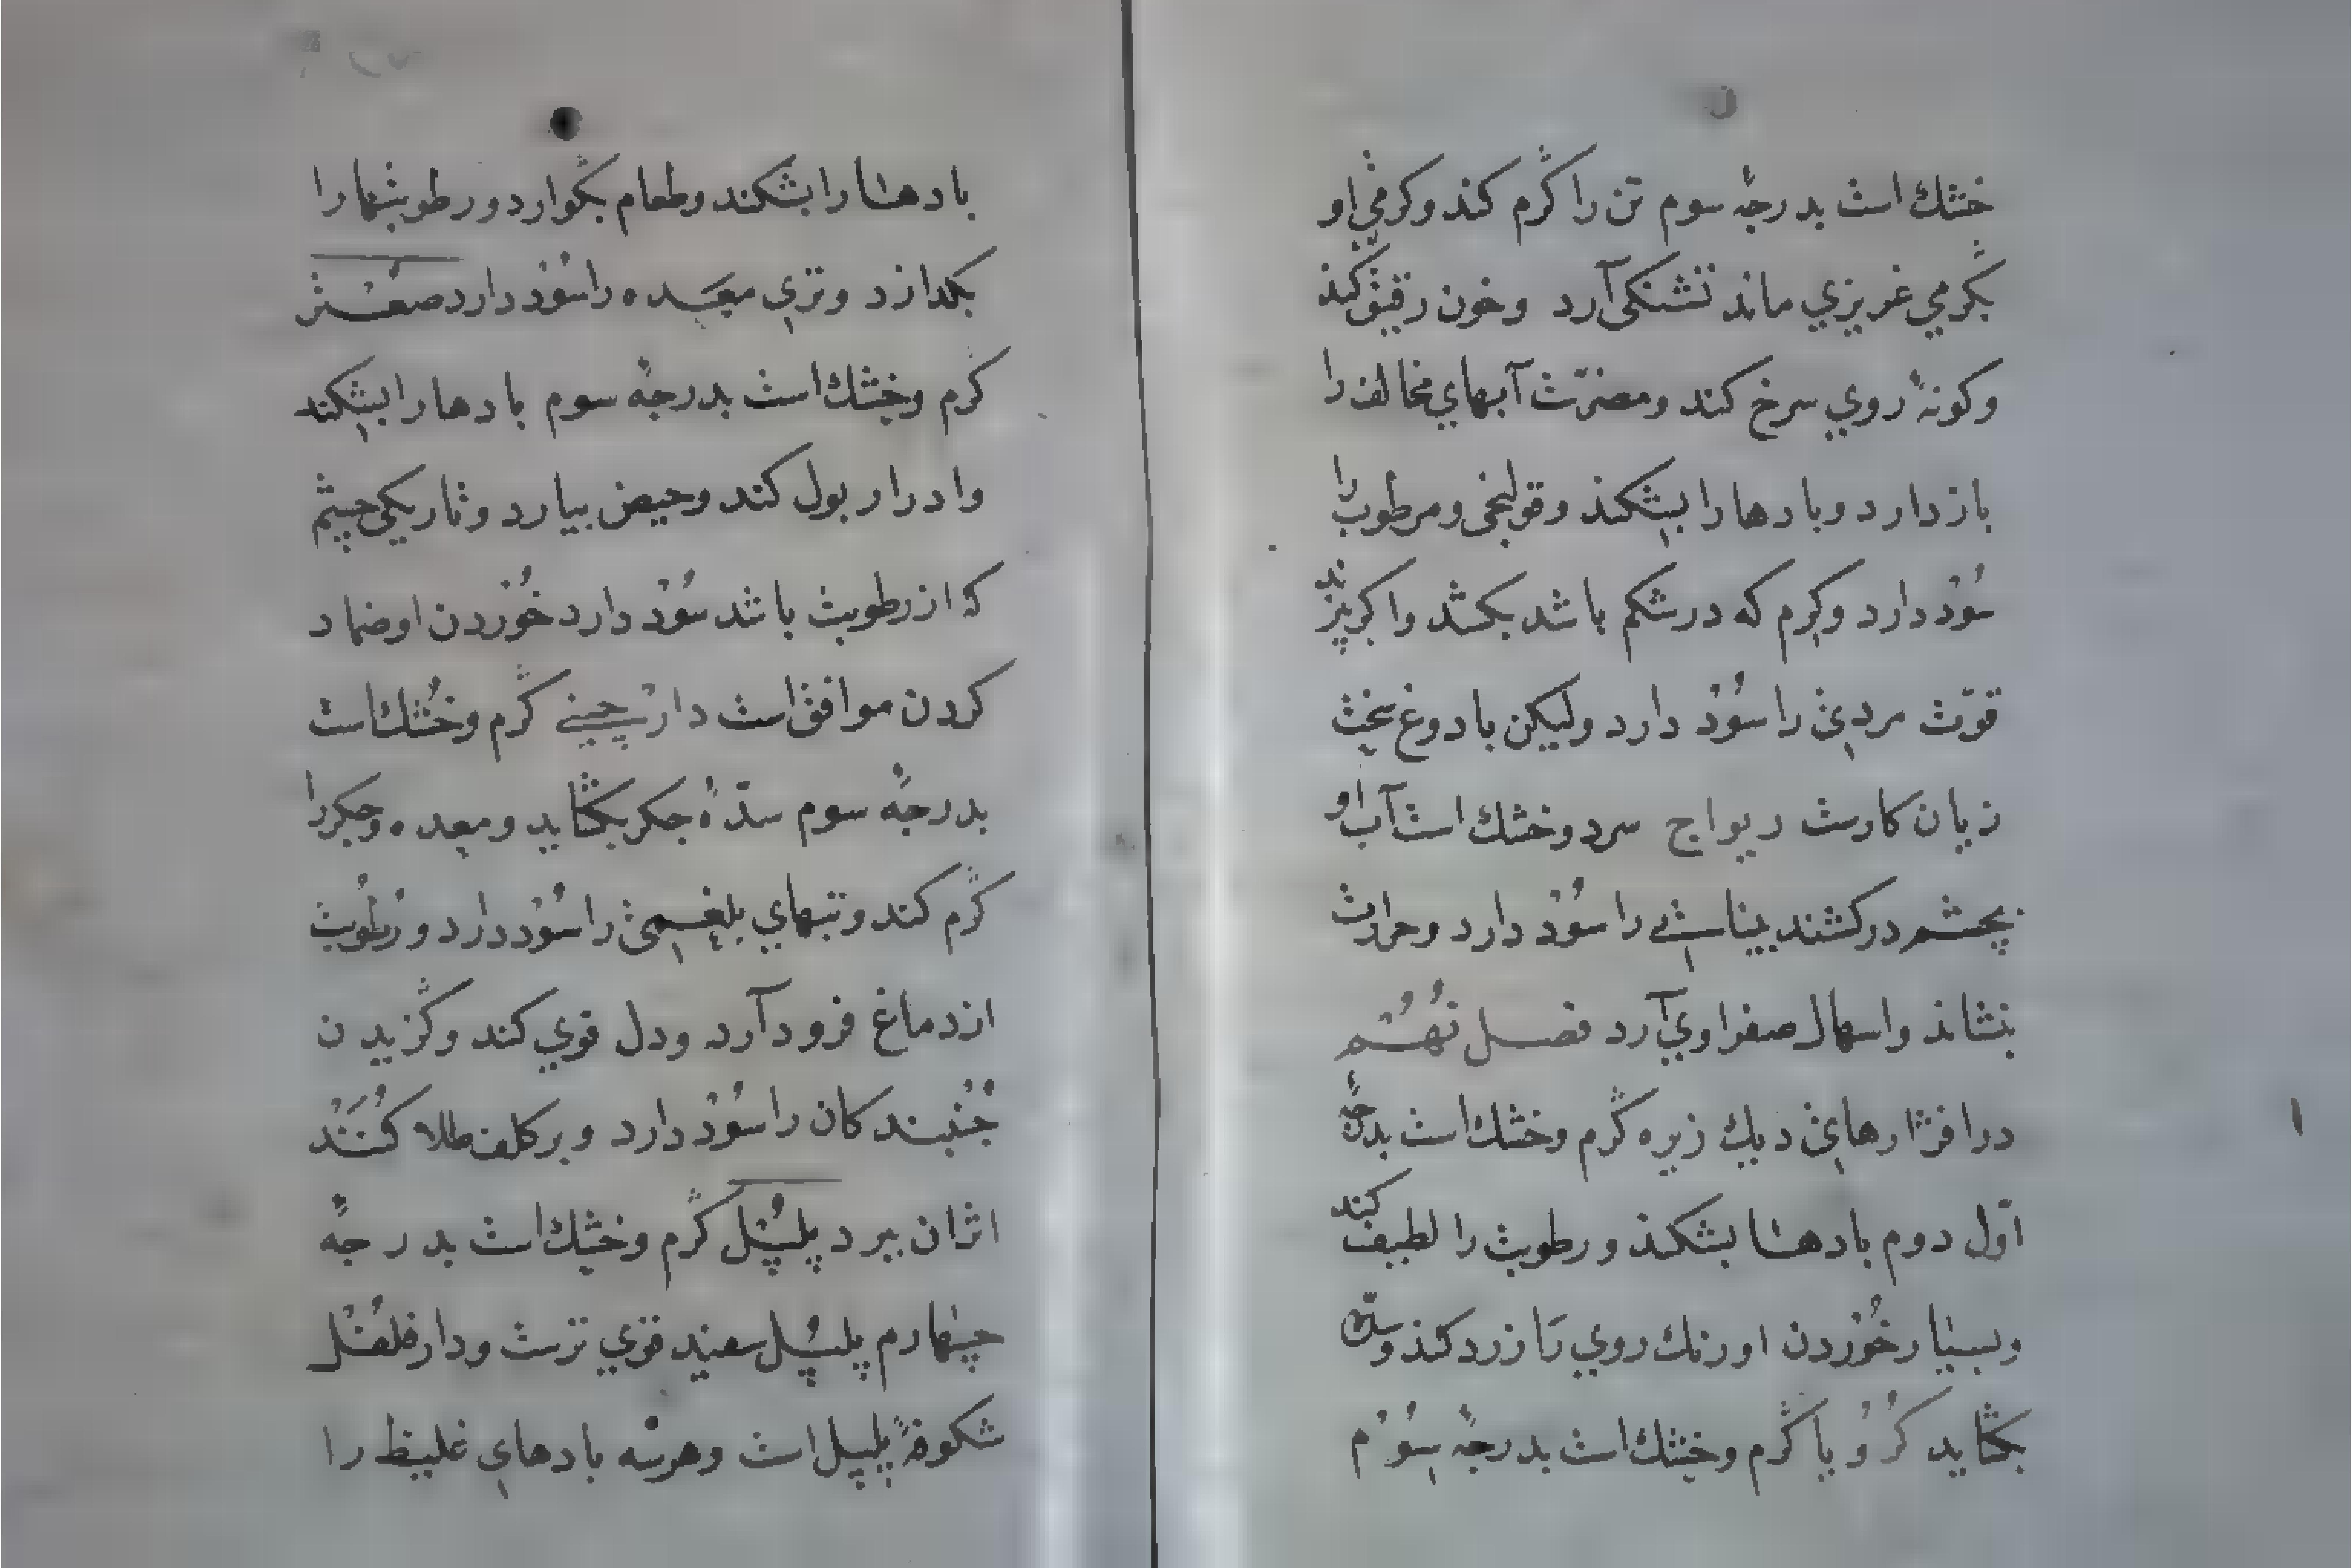 خشك است بدرجهٔ سوم تن را گرم كند وكرمي او
بگرمي غريزي ماند تشنكى آرد وخون رقيق كند
وكونهٔ روي سرخ كند ومضرّت آبهاي مخالف را
بازدارد وبادها را بشكند وقولنجى ومرطوب را
سُوْد دارد وكِرم كه در شكم باشد بكشد واكر پزند
قوّت مردى را سُوْد دارد وليكن با دوغ سخت
زيان كارست ريواج سرد وخشك است آب او
بچشم دركشند بيناى را سُوْد دارد وحرارت
بنشاند واسهال صفراوي آرد فصل نهُم
در افزارهاى ديك زيره گرم وخشك است بدرجهٔ
اوّل دوم بادها بشكند ورطوبت را لطيف كند
وبسيار خُوْردن او رنك روي را زرد كند وسدّه
بكشايد كَرُوْيا گرم وخشك است بدرجهٔ سِوُم
بادها را بشكند وطعام بگوارد ورطوبتها را
بكدازد وتري معده را سُوْد دارد صعتر
گرم وخشك است بدرجهٔ سوم بادها را بشكند
وادرار بول كند وحيض بيارد وتاريكى چشم
كه از رطوبت باشد سُوْد دارد خُوْردن او ضماد
كردن موافق است دارچيني گرم وخُشك است
بدرجهٔ سوم سدّهٔ جكر بكشايد ومعده وجكر را
گرم كند وتبهاي بلغمى را سُوْد دارد ورُطُوبت
از دماغ فرود آرد ودل قوي كند وگزيدن
جُنْبندكان را سُوْد دارد وبر كلف طلا كُنَنْد
اثر آن ببرد پلپُل گرم وخشك است بدرجهٔ
چهارم پلپُل سفيد قوي ترست ودارفلفُل
شكوفهٔ پلپل است وهرسه بادهاي غليظ را